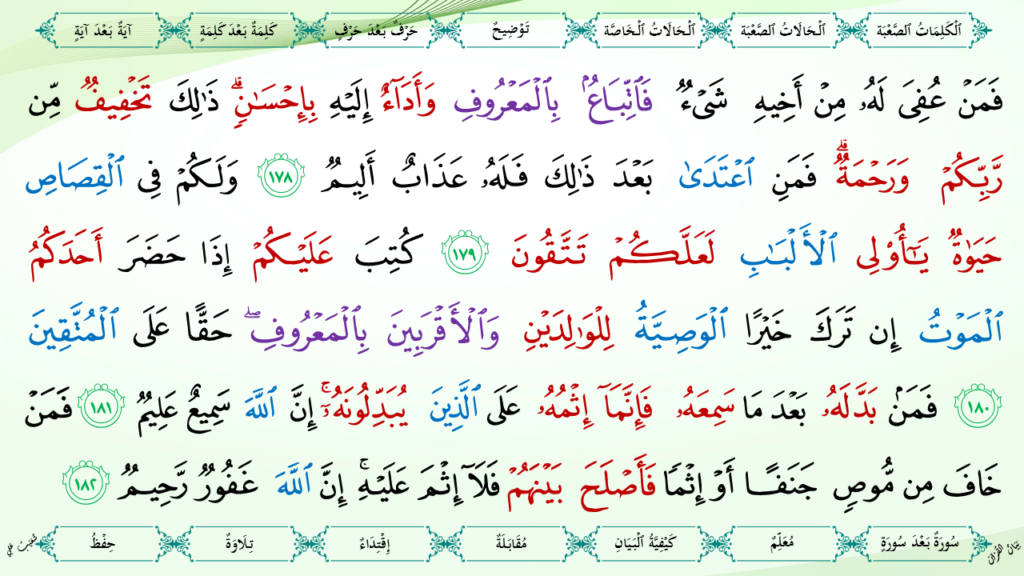 اَلْكَلِمَاتُ الصَّعْبَة اَلْحَالَاتُ الصَّعْبَة اَلْحَالَاتُ الْخَاصَّة تَوْضِيحٌ حَرْفٌ بَعْدَ حَرْفٍ كَلِمَةٌ بَعْدَ كَلِمَةٍ آيَةٌ بَعْدَ آيَةٍ
فَمَنْ عُفِىَ لَهُۥ مِنْ أَخِيهِ شَىْءٌ فَٱتِّبَاعٌۢ بِٱلْمَعْرُوفِ وَأَدَآءٌ إِلَيْهِ بِإِحْسَـٰنٍۗ ذَٰلِكَ تَخْفِيفٌ مِّن
رَّبِّكُمْ وَرَحْمَةٌۗ فَمَنِ ٱعْتَدَىٰ بَعْدَ ذَٰلِكَ فَلَهُۥ عَذَابٌ أَلِيمٌ ١٧٨ وَلَكُمْ فِى ٱلْقِصَاصِ
حَيَوٰةٌ يَـٰٓأُو۟لِى ٱلْأَلْبَـٰبِ لَعَلَّكُمْ تَتَّقُونَ ١٧٩ كُتِبَ عَلَيْكُمْ إِذَا حَضَرَ أَحَدَكُمُ
ٱلْمَوْتُ إِن تَرَكَ خَيْرًا ٱلْوَصِيَّةُ لِلْوَٰلِدَيْنِ وَٱلْأَقْرَبِينَ بِٱلْمَعْرُوفِۖ حَقًّا عَلَى ٱلْمُتَّقِينَ
١٨٠ فَمَنۢ بَدَّلَهُۥ بَعْدَ مَا سَمِعَهُۥ فَإِنَّمَآ إِثْمُهُۥ عَلَى ٱلَّذِينَ يُبَدِّلُونَهُۥٓۚ إِنَّ ٱللَّهَ سَمِيعٌ عَلِيمٌ ١٨١ فَمَنْ
خَافَ مِن مُّوصٍ جَنَفًا أَوْ إِثْمًا فَأَصْلَحَ بَيْنَهُمْ فَلَآ إِثْمَ عَلَيْهِۚ إِنَّ ٱللَّهَ غَفُورٌ رَّحِيمٌ ١٨٢
سُورَةٌ بَعْدَ سُورَةٍ مُعَلِّمٌ كَيْفِيَّةُ الْبَيَانِ مُقَابَلَةٌ إِقْتِدَاءٌ تِلَاوَةٌ حِفْظٌ
بَيَانُ الْقُرْآن